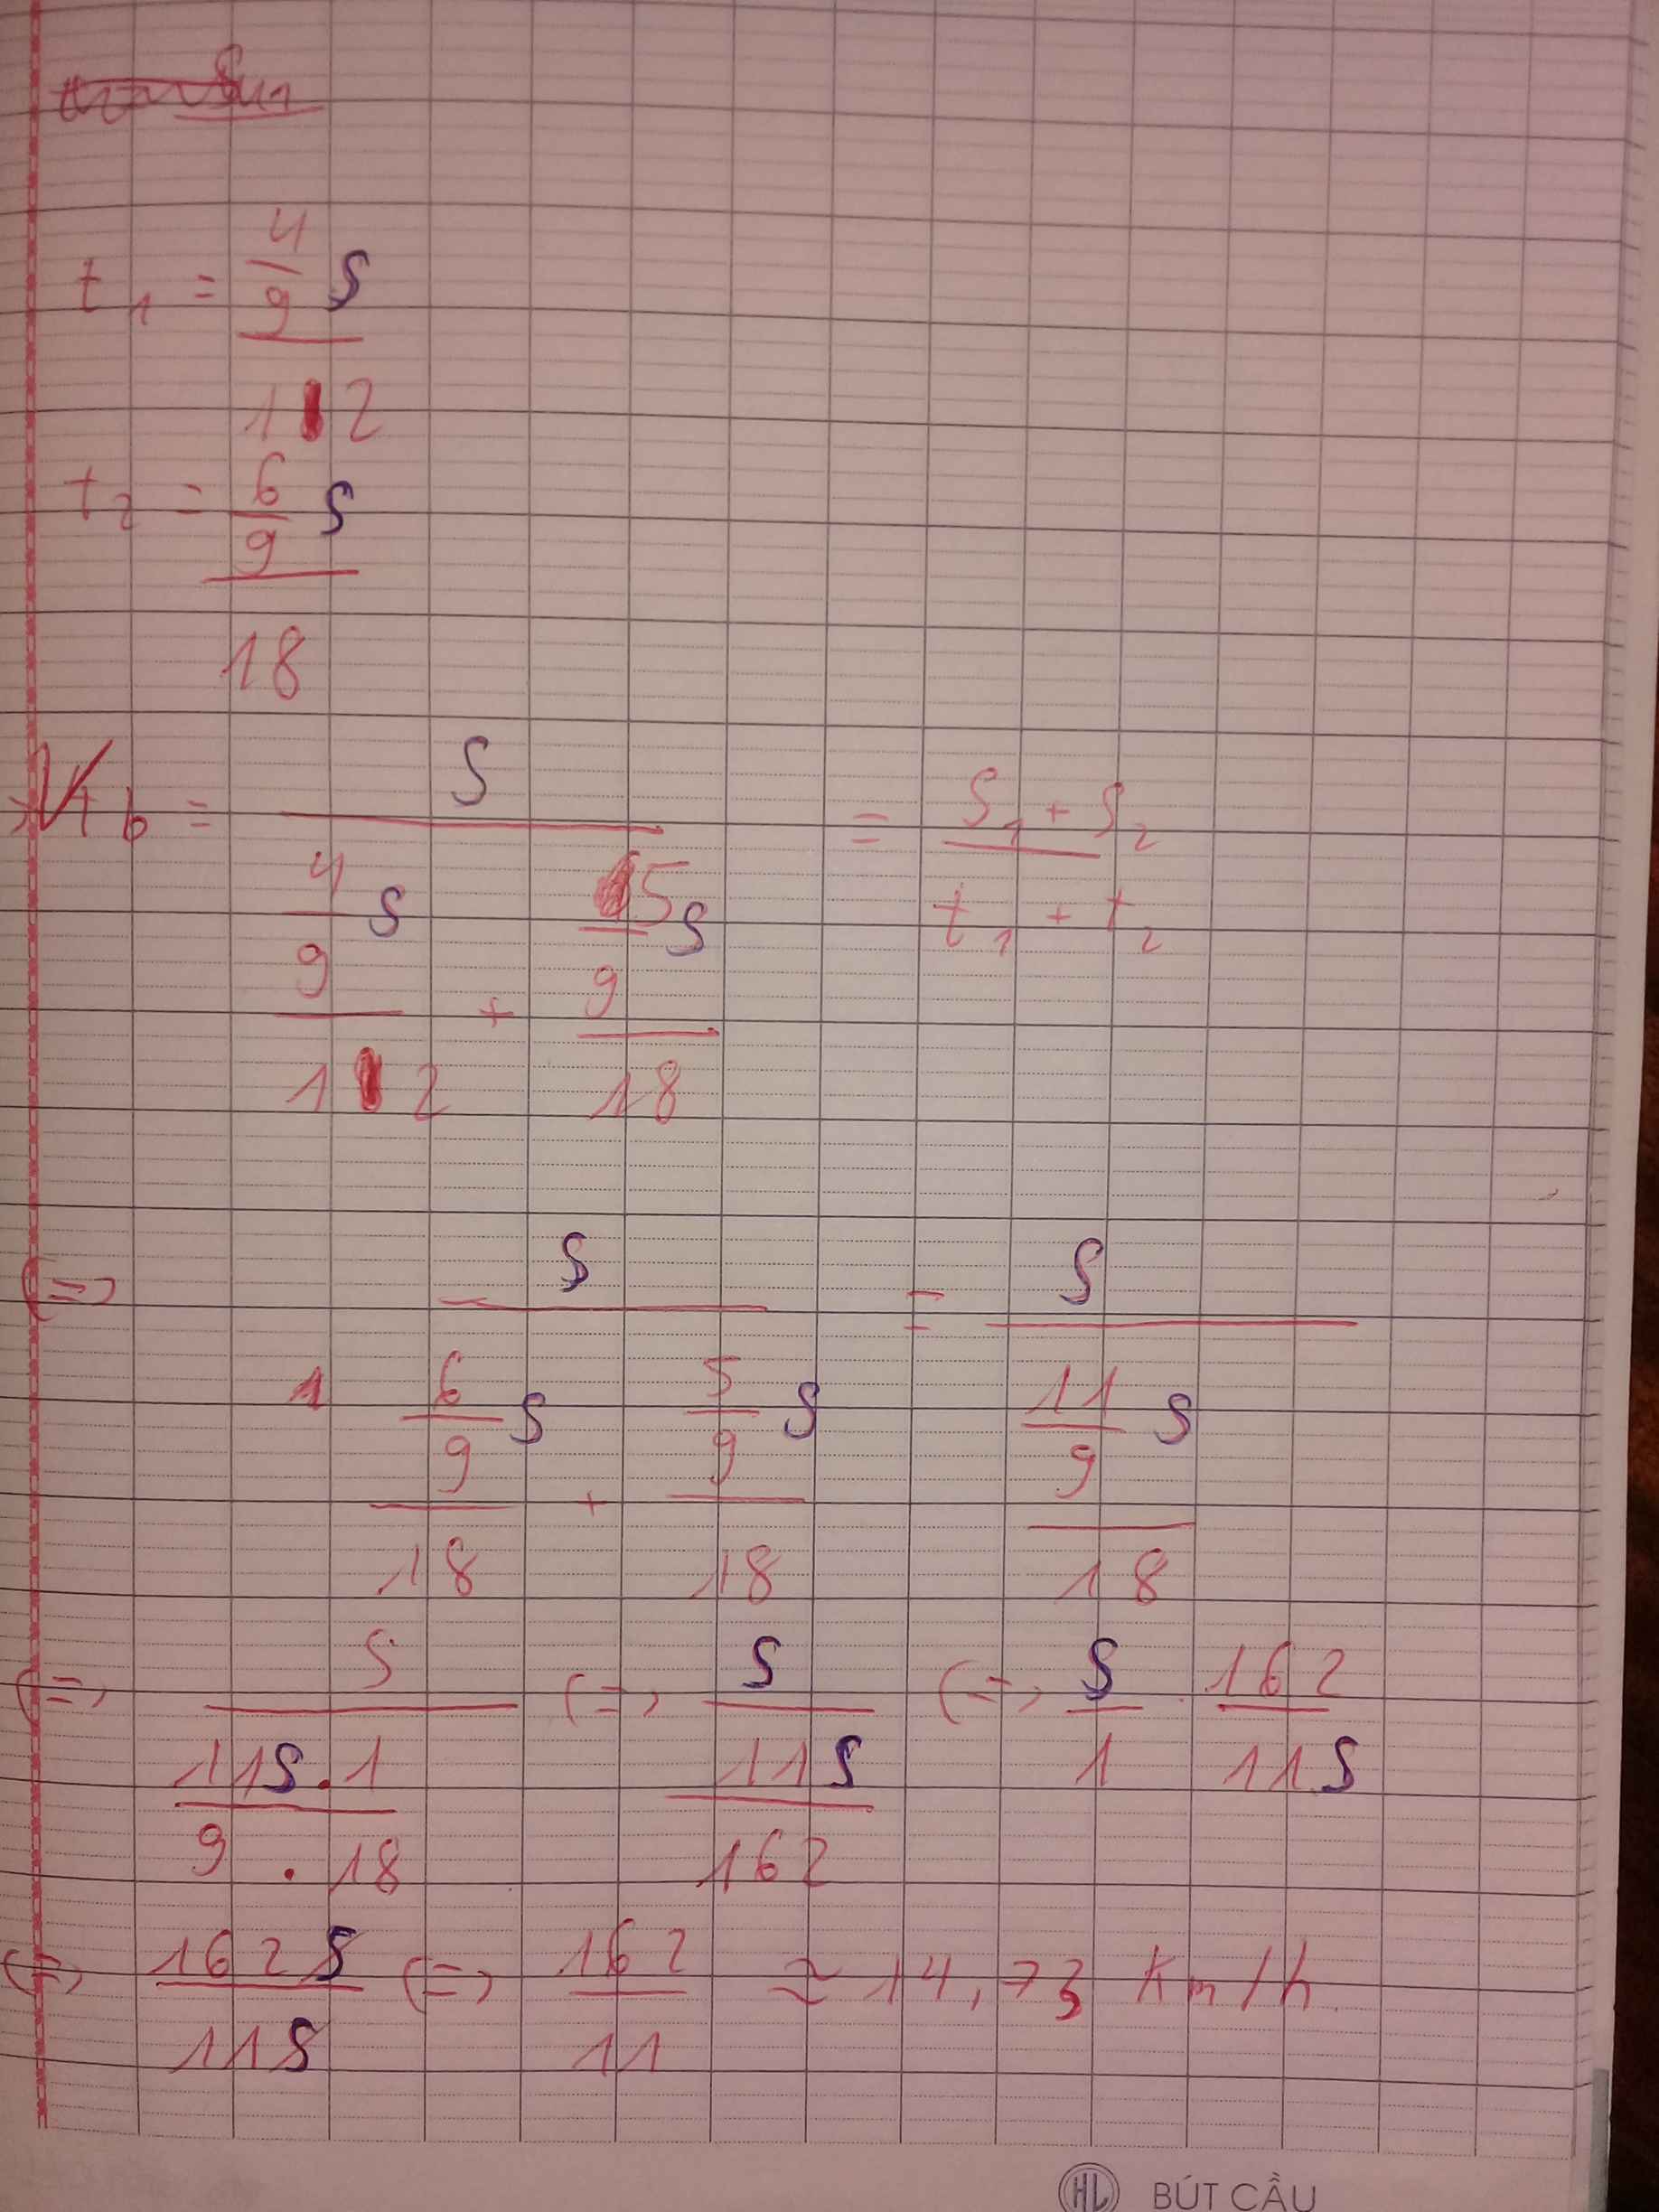 t₁ = (4/9 S)/12
t₂ = (6/9 S)/18
Vtb = S/((4/9 S)/12 + (5/9 S)/18) = (S₁ + S₂)/(t₁ + t₂)
(=> 1 S/((6/9 S)/18 + (5/9 S)/18) = S/((11/9 S)/18)
(=> S/((11S . 1)/(9 . 18)) (=> S/(11S/162) (=> S/1 . 162/11S
(=> 162S/11S (=> 162/11 ≈ 14,73 km/h
HL BÚT CẦU